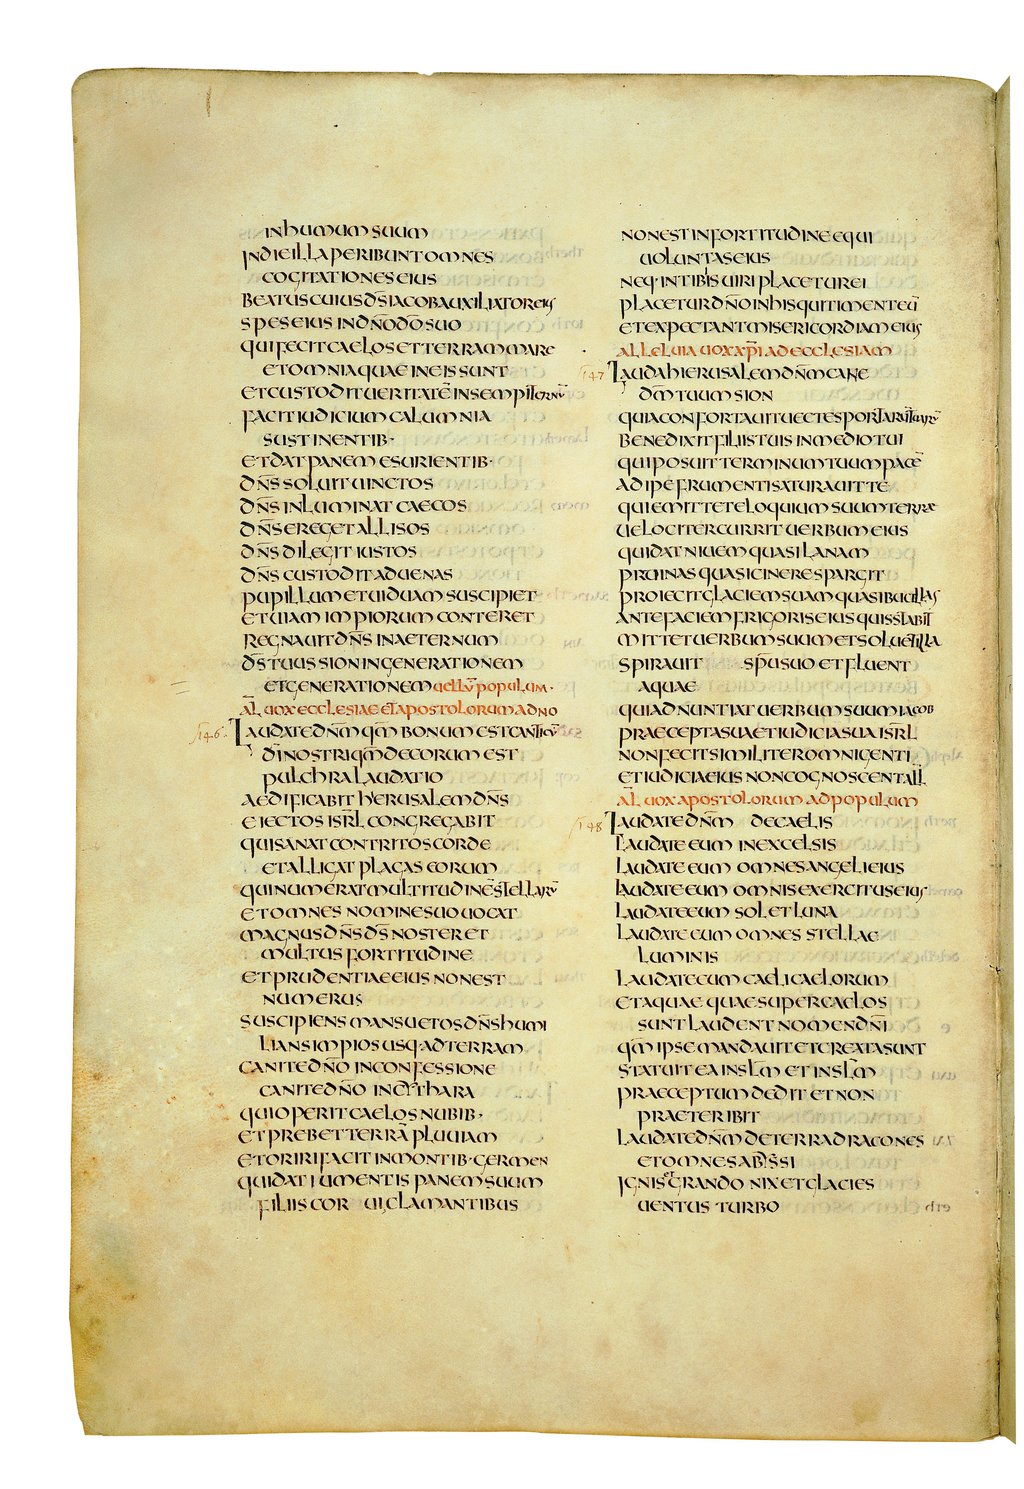 IN humum SUUM
IN DIE ILLA PERIBUNT OMNES
COGITATIONES EIUS
BEATUS CUIUS D̄S IACOB AUXILIATOR EIUS
SPES EIUS IN DN̄O D̄O SUO
QUI FECIT CAELOS ET TERRAM MARE
ET OMNIA QUAE IN EIS SUNT
ET CUSTODIT UERITATĒ IN SEMPITERNŪ
FACIT IUDICIUM CALUMNIA
SUSTINENTIB·
ET DAT PANEM ESURIENTIB·
DN̄S SOLUIT UINCTOS
DN̄S INLUMINAT CAECOS
DN̄S EREGET ALLISOS
DN̄S DILEGIT IUSTOS
DN̄S CUSTODIT ADUENAS
PUPILLUM ET UIDUAM SUSCIPIET
ET UIAM IMPIORUM CONTERET
REGNAUIT DN̄S IN AETERNUM
D̄S TUUS SION IN GENERATIONEM
ET GENERATIONEM POPULUM·
AL̄ UOX ECCLESIAE ET APOSTOLORUM AD NO
146 LAUDATE DN̄M QM̄ BONUM EST CANTICŪ
D̄I NOSTRI QM̄ DECORUM EST
PULCHRA LAUDATIO
AEDIFICABIT HIERUSALEM DN̄S
EIECTOS ISRL̄ CONGREGABIT
QUI SANAT CONTRITOS CORDE
ET ALLIGAT PLAGAS EORUM
QUI NUMERAT MULTITUDINĒ STELLARŪ
ET OMNES NOMINE SUO UOCAT
MAGNUS DN̄S D̄S NOSTER ET
MULTUS FORTITUDINE
ET PRUDENTIAE EIUS NON EST
NUMERUS
SUSCIPIENS MANSUETOS DN̄S HUMI
LIANS IMPIOS USQ· AD TERRAM
CANITE DN̄O IN CONFESSIONE
CANITE DN̄O IN CYTHARA
QUI OPERIT CAELOS NUBIB·
ET PREBET TERRĀ PLUUIAM
ET ORIRI FACIT IN MONTIB· GERMEN
QUI DAT IUMENTIS PANEM SUUM
FILIIS CORUI CLAMANTIBUS
NON EST IN FORTITUDINE EQUI
UOLUNTAS EIUS
NEQ· IN TIBIS UIRI PLACETUR EI
PLACETUR DN̄O IN HIS QUI TIMENT EŪ
ET EXPECTANT MISERICORDIAM EIUS
ALLELUIA UOX XP̄I AD ECCLESIAM
147 LAUDA HIERUSALEM DN̄M CANE
DM̄ TUUM SION
QUIA CONFORTAUIT UECTES PORTARŪ TUARŪ
BENEDIXIT FILIIS TUIS IN MEDIO TUI
QUI POSUIT TERMINUM TUUM PACĒ
ADIPE FRUMENTI SATURAUIT TE
QUI EMITTET ELOQUIUM SUUM TERRAE
UELOCITER CURRIT UERBUM EIUS
QUI DAT NIUEM QUASI LANAM
PRUINAS QUASI CINERES PARGIT
PROIECIT GLACIEM SUAM QUASI BUCILLAS
ANTE FACIEM FRIGORIS EIUS QUIS STABIT
MITTET UERBUM SUUM ET SOLUET ILLA
SPIRAUIT SP̄U SUO ET FLUENT
AQUAE
QUI ADNUNTIAT UERBUM SUUM IACOB
PRAECEPTA SUA ET IUDICIA SUA ISRL̄
NON FECIT SIMILITER OMNI GENTI
ET IUDICIA EIUS NON COGNOSCENT ALL̄
AL̄ UOX APOSTOLORUM AD POPULUM
148 LAUDATE DN̄M DE CAELIS
LAUDATE EUM IN EXCELSIS
LAUDATE EUM OMNES ANGELI EIUS
LAUDATE EUM OMNIS EXERCITUS EIUS
LAUDATE EUM SOL ET LUNA
LAUDATE EUM OMNES STELLAE
LUMINIS
LAUDATE EUM CAELI CAELORUM
ET AQUAE QUAE SUPER CAELOS
SUNT LAUDENT NOMEN DN̄I
QM̄ IPSE MANDAUIT ET CREATA SUNT
STATUIT EA IN SLM̄ ET IN SLM̄
PRAECEPTUM DEDIT ET NON
PRAETERIBIT
LAUDATE DN̄M DE TERRA DRACONES
ET OMNES ABISSI
IGNIS ET GRANDO NIX ET GLACIES
UENTUS TURBO